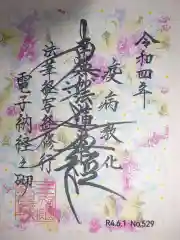 令和四年
疫病教化
南無妙法蓮華経
法華経写経修行
電子納経之碑
R4.6.1 No.529